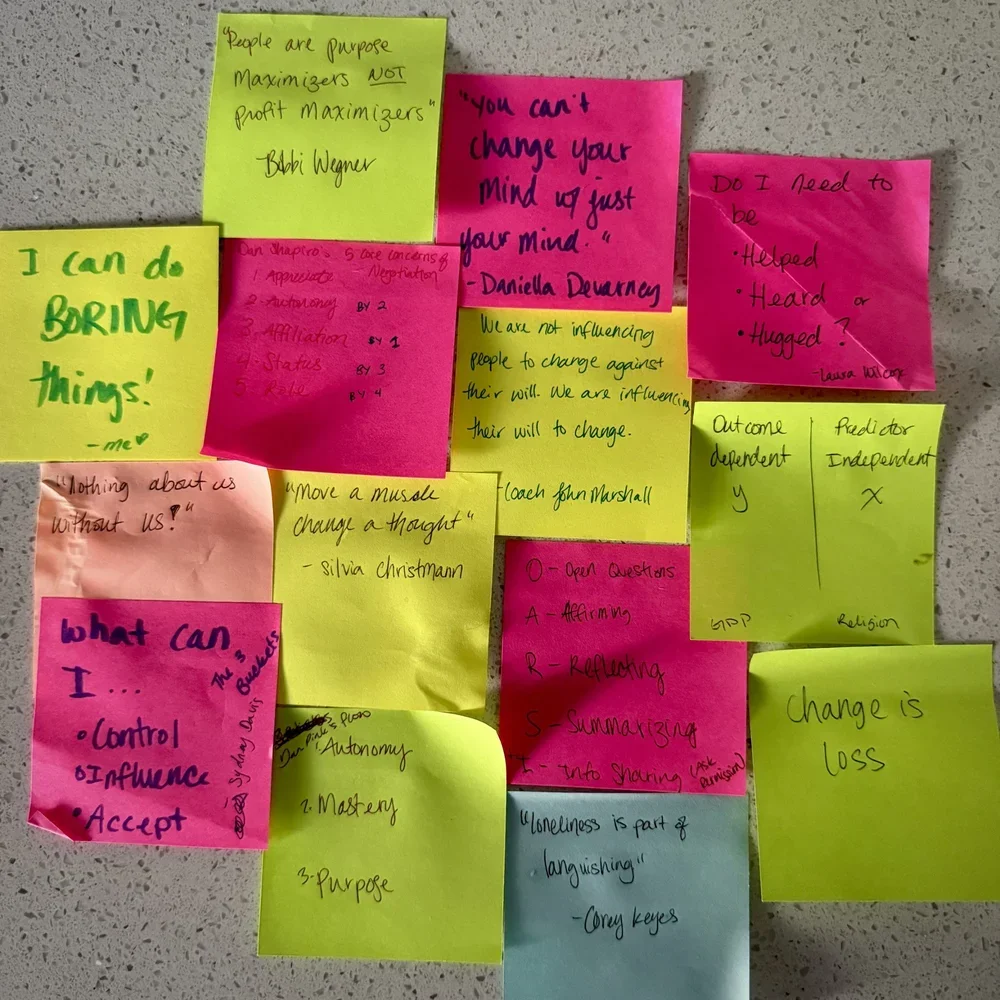 "People are purpose
Maximizers NOT
profit Maximizers"
Bobbi Wegner
"You can't
change your
Mind w/ just
your Mind."
- Daniella Devarney
Do I need to
be
• Helped
• Heard or
• Hugged?
- Laura Wilcox
I can do
BORING
things!
- me
Dan Shapiro's 5 core concerns of
Negotiation
1. Appreciate
2. Autonomy BY 2
3. Affiliation BY 1
4. Status BY 3
5. Role BY 4
We are not influencing
people to change against
their will. We are influencing
their will to change.
- Coach John Marshall
Outcome
dependent
y
GDP
Predictor
Independent
x
Religion
"Nothing about us
without us!"
"Move a muscle
change a thought"
- Silvia Christmann
O - Open Questions
A - Affirming
R - Reflecting
S - Summarizing
I - Info Sharing (Ask
Permission)
What can
I ...
• Control
• Influence
• Accept
The 3
Buckets
- Sydney Davis
Dan Pink's
1. Autonomy
2. Mastery
3- Purpose
Change is
loss
"Loneliness is part of
languishing"
- Corey Keyes